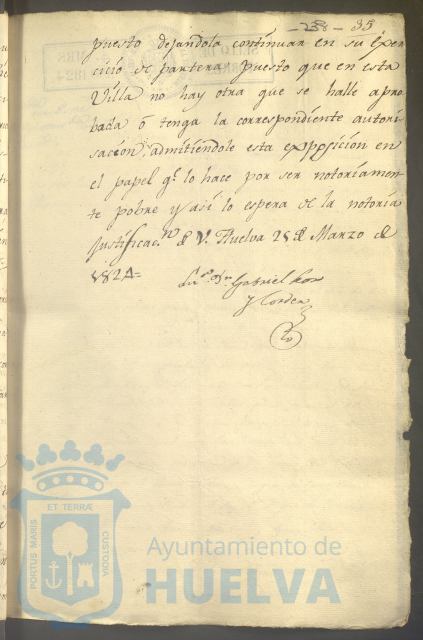 238 - 35
puesto dejandola continuar en su exer-
cicio de partera puesto que en esta
Villa no hay otra que se halle apro
bada ó tenga la correspondiente autori
sacion, admitiéndole esta exposicion en
el papel q.e lo hace por ser notoriamen-
te pobre y asi lo espera de la notoria
Justificac.n de V. Huelva 28 de Marzo de
1824=
Gabriel
y Cordero
PORTUS MARIS
ET TERRÆ
CUSTODIA
Ayuntamiento de
HUELVA